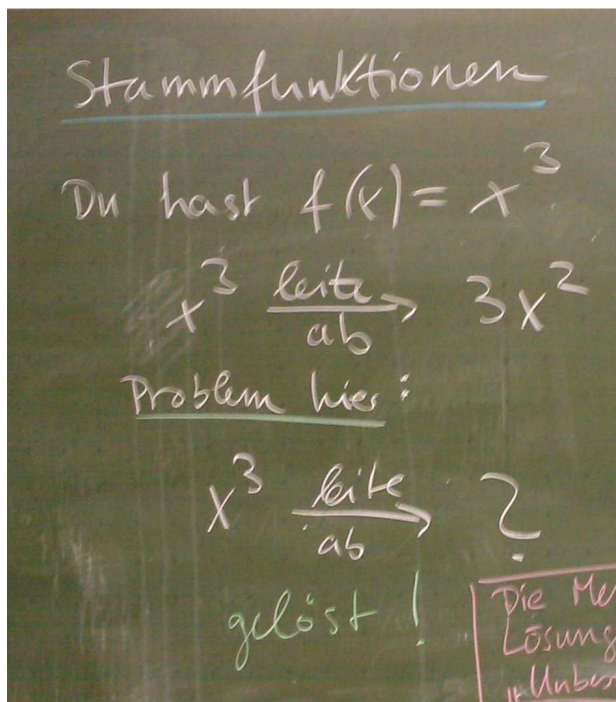 Stammfunktionen
Du hast f(x) = x³
x³ leite ab → 3x²
Problem hier:
x³ leite ab → ?
gelöst!
Die
Lösung